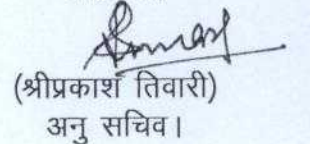 (श्रीप्रकाश तिवारी)
अनु सचिव।